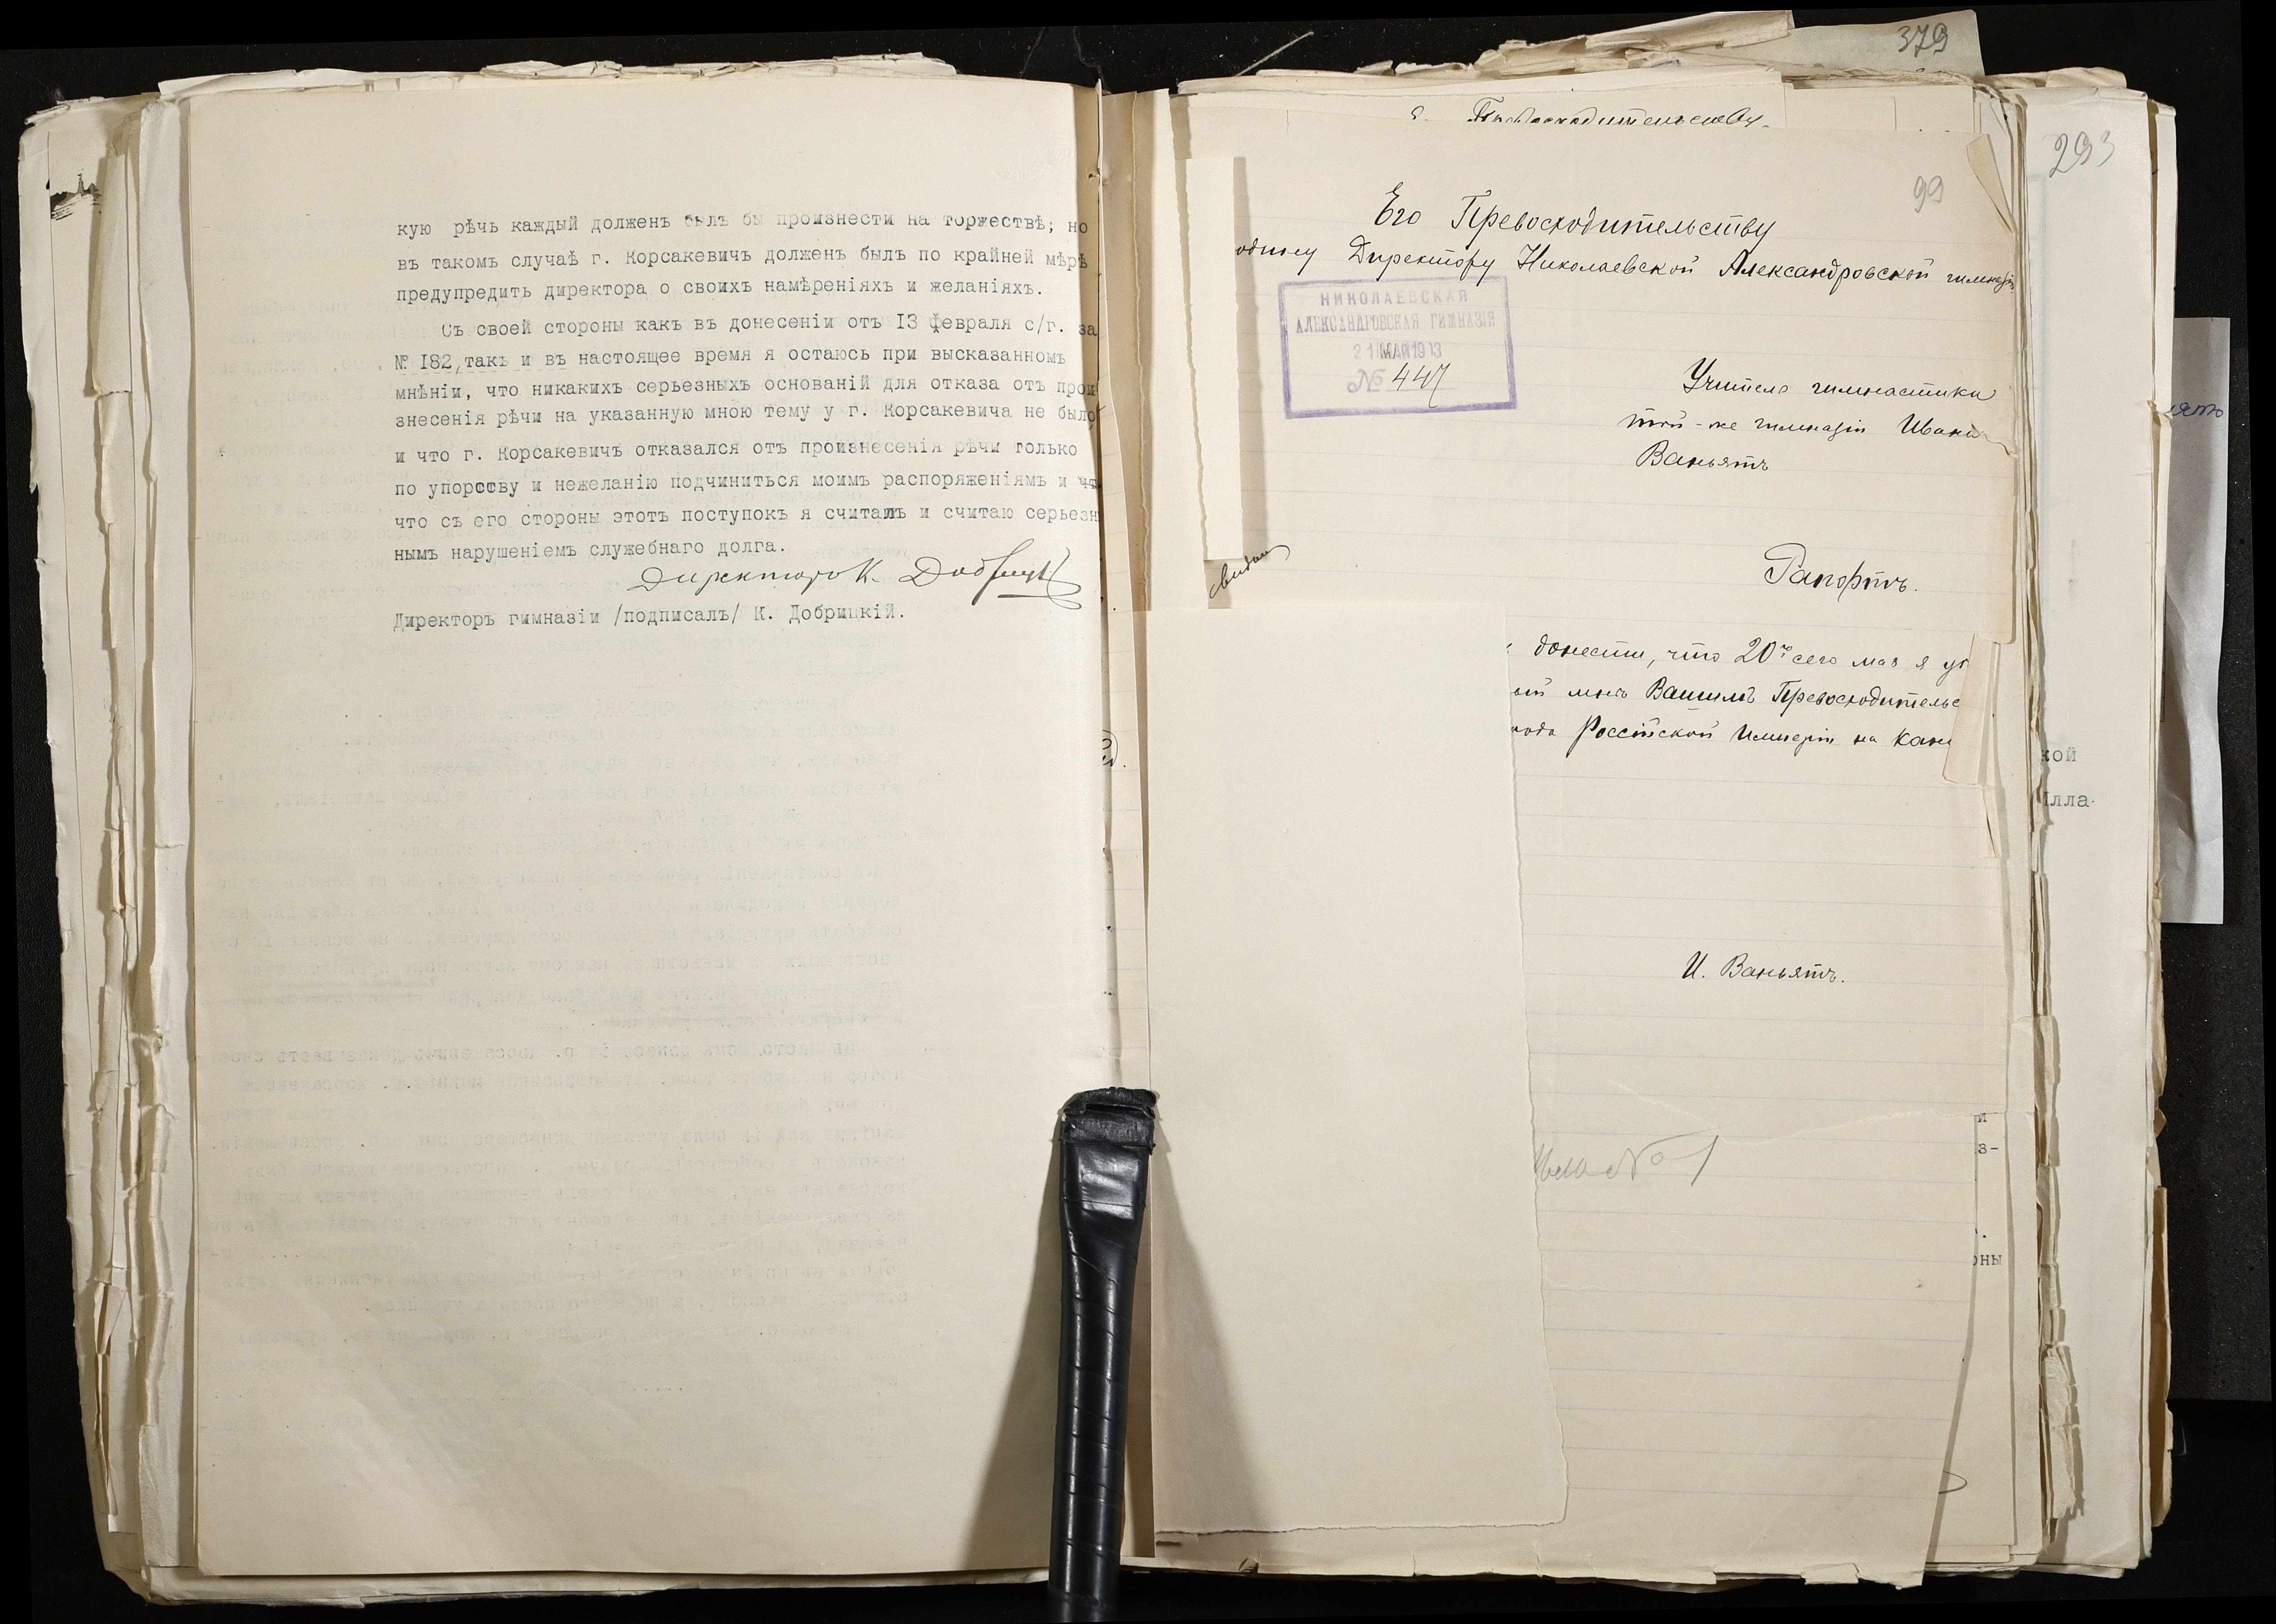 кую рѣчь каждый долженъ былъ бы произнести на торжествѣ; но
въ такомъ случаѣ г. Корсакевичъ долженъ былъ по крайней мѣрѣ
предупредить директора о своихъ намѣреніяхъ и желаніяхъ.
Съ своей стороны какъ въ донесеніи отъ I3 февраля с/г. за
№ I82, такъ и въ настоящее время я остаюсь при высказанномъ
мнѣніи, что никакихъ серьезныхъ основаній для отказа отъ прои
знесенія рѣчи на указанную мною тему у г. Корсакевича не было
и что г. Корсакевичъ отказался отъ произнесенія рѣчи только
по упорству и нежеланію подчиниться моимъ распоряженіямъ и
что съ его стороны этотъ поступокъ я считалъ и считаю серьезн
нымъ нарушеніемъ служебнаго долга.
Директоръ К.
Директоръ гимназіи /подписалъ/ К. Добрицкій.
379
293
99
Его Превосходительству
одину Директору Николаевской Александровской гимназіи
НИКОЛАЕВСКАЯ
АЛЕКСАНДРОВСКАЯ ГИМНАЗІЯ
21 МАЯ 1913
№ 447
Учителя гимнастики
той-же гимназіи Ивана
Ваньятъ
Рапортъ.
донести, что 20го сего мая я
мнѣ Вашимъ Превосходительс
Россійской Имперіи на
кой
лла-
И. Ваньятъ.
№ 1
и
з-
оны